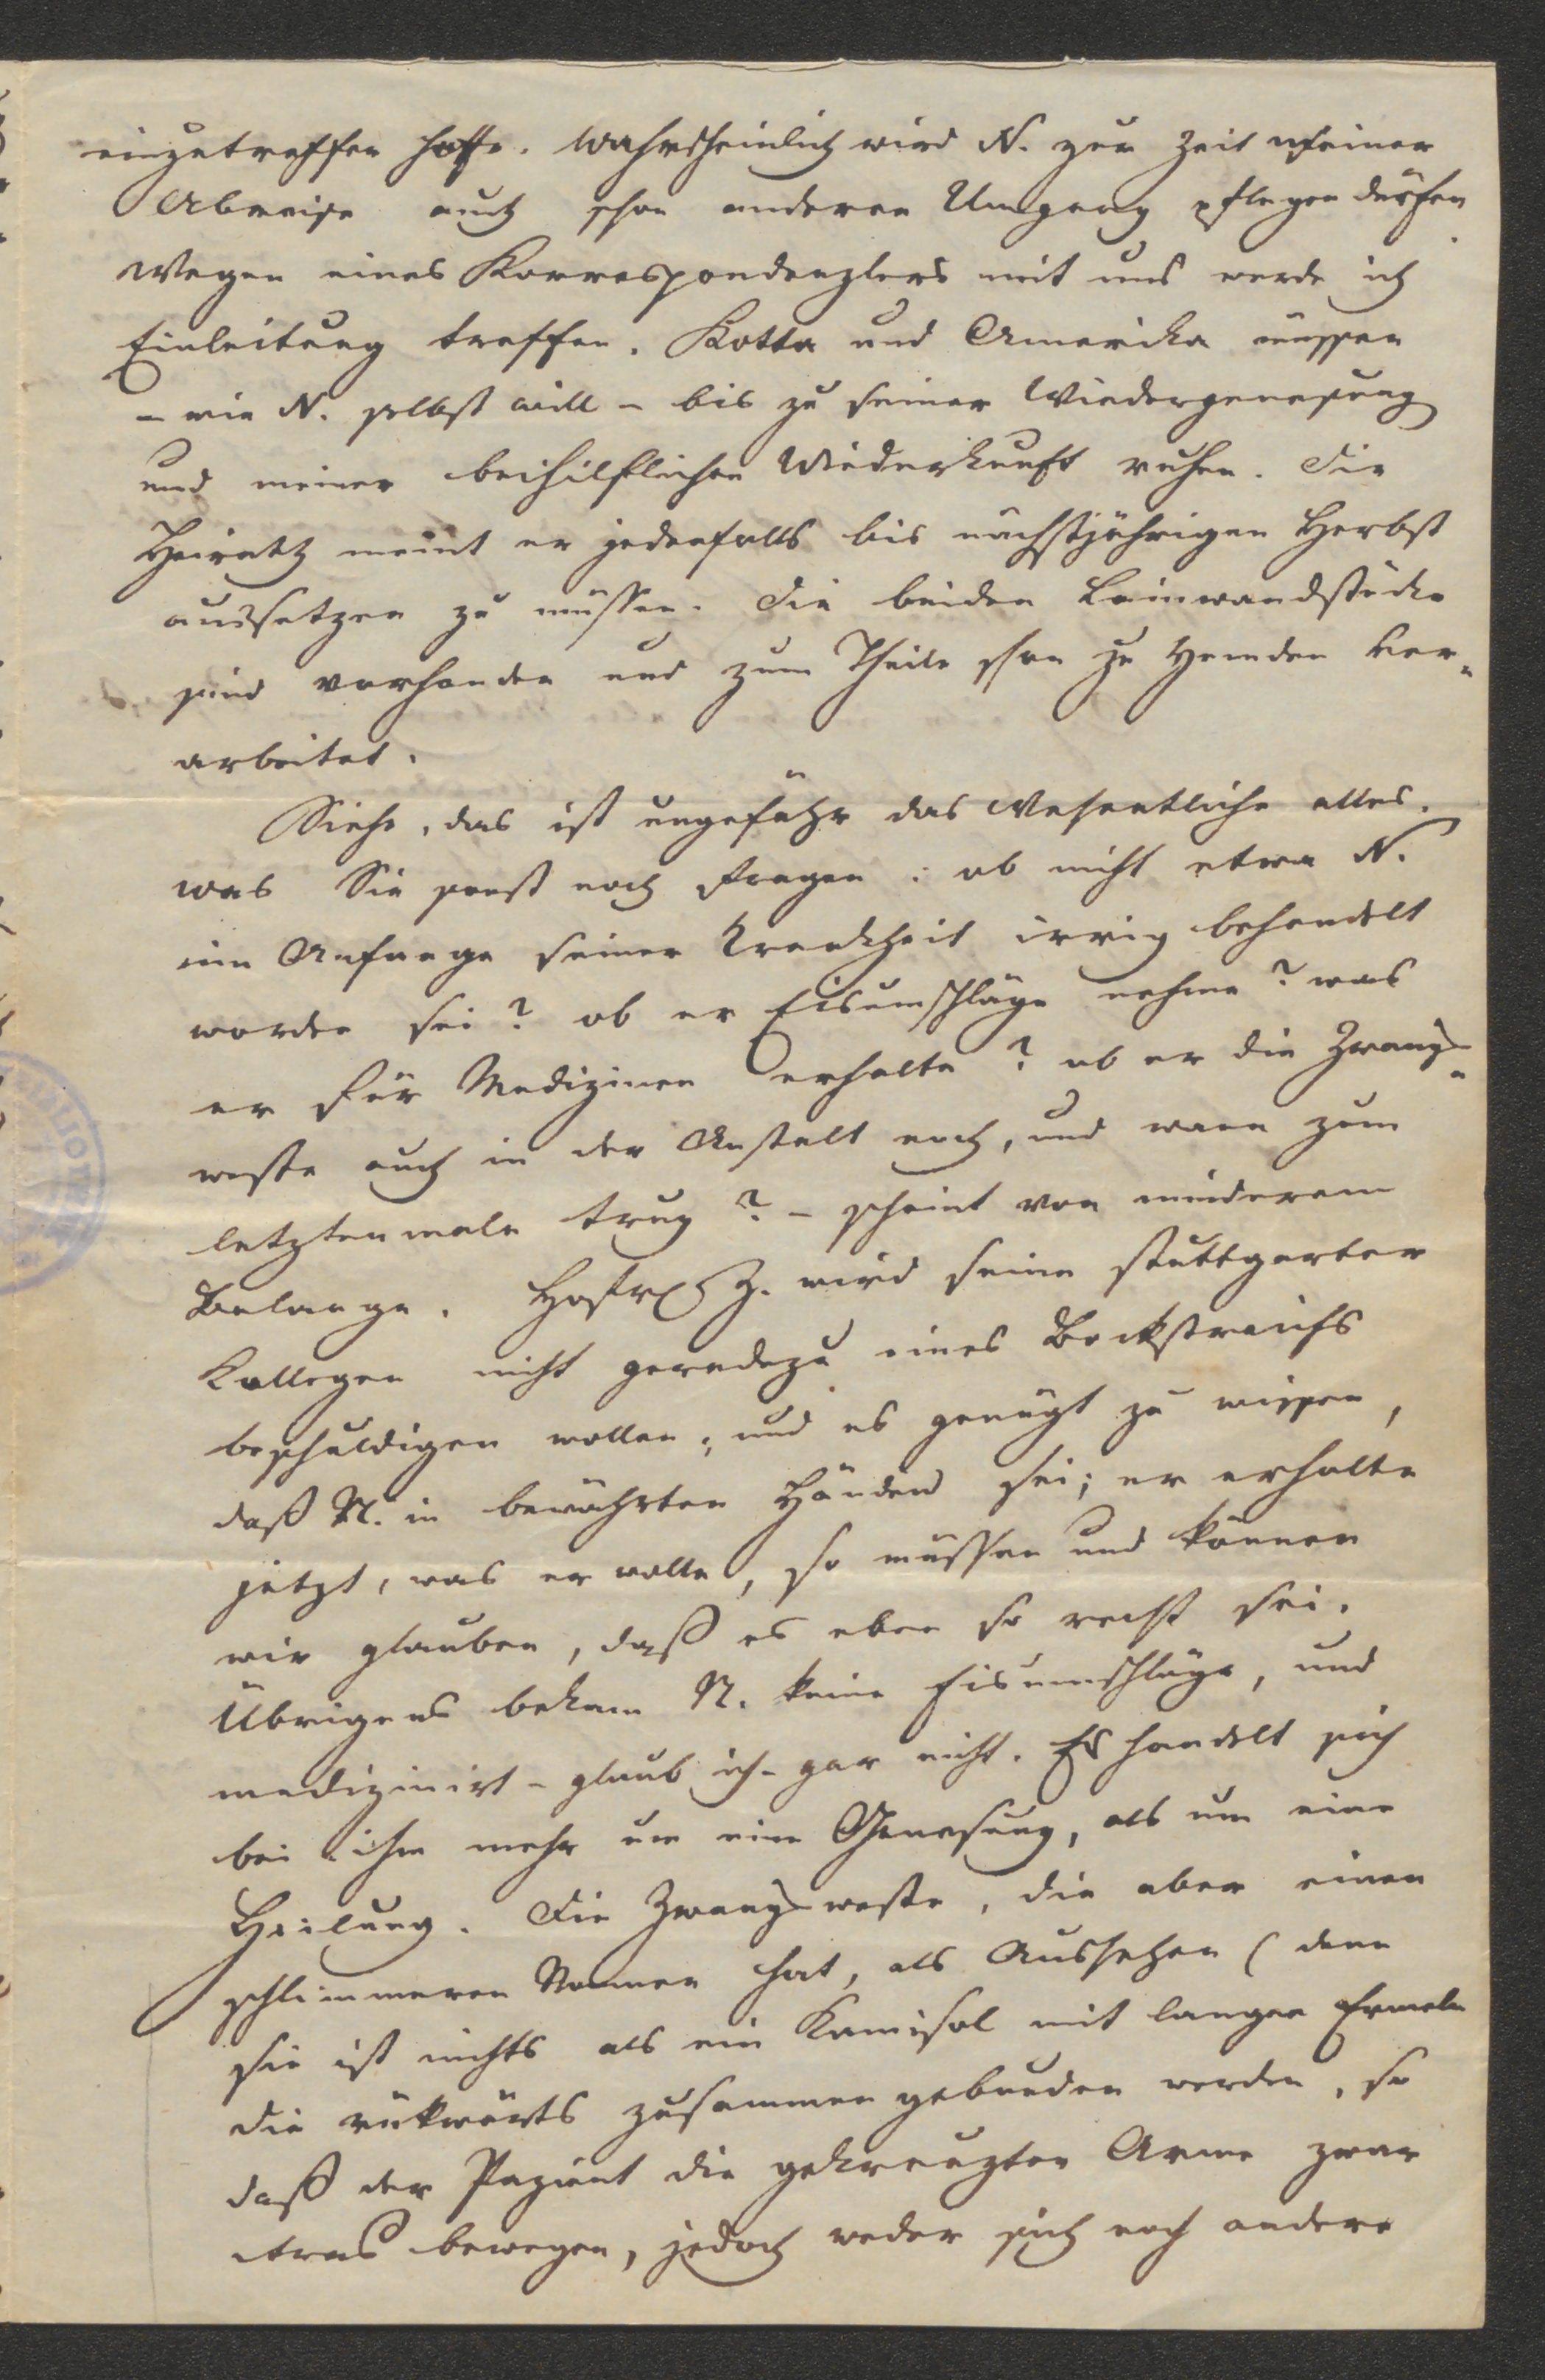 einzutreffen hoffe. Wahrscheinlich wird N. zur Zeit meiner
Abreise auch schon anderen Umgang pflegen dürfen.
Wegen eines Korrespondenzlers mit uns werde ich
Einleitung treffen. Kotta und Amerika müssen
– wie N. selbst will – bis zu seiner Wiedergenesung
und meiner beihilflichen Wiederkunft ruhen. Die
Heirath meint er jedenfalls bis nächstjährigen Herbst
aussetzen zu müssen. Die beiden Leinwandstücke
sind vorhanden und zum Theile schon zu Hemden ver-
arbeitet.
Siehe, das ist ungefähr das Wesentliche alles.
was Sie sonst noch fragen: ob nicht etwa N.
im Anfange seiner Krankheit irrig behandelt
worden sei? ob er Eisumschläge nehme? was
er für Medizinen erhalte? ob er die Zwangs-
weste auch in der Anstalt noch, und wann zum
letztenmale trug? – scheint von minderem
Belange. Hofr. Z. wird seine stuttgarter
Kollegen nicht geradezu eines Bockstreichs
beschuldigen wollen, und es genügt zu wissen,
daß N. in bewährten Händen sei; er erhalte
jetzt, was er wolle, so müssen und können
wir glauben, daß es eben so recht sei.
Übrigens bekam N. keine Eisumschläge, und
medizinirt – glaub ich – gar nicht. Es handelt sich
bei ihm mehr um eine Genesung, als um eine
Heilung. Die Zwangsweste, die aber einen
schlimmeren Namen hat, als Aussehen (denn
sie ist nichts als ein Kamisol mit langen Ermeln
die rükwärts zusammen gebunden werden, so
daß der Pazient die gekreuzten Arme zwar
etwas bewegen, jedoch weder sich noch andere